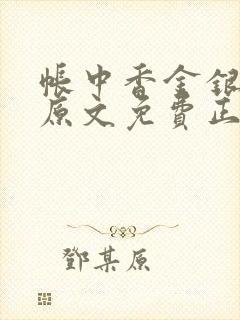 帳中香金銀
原文免費正
鄧某原